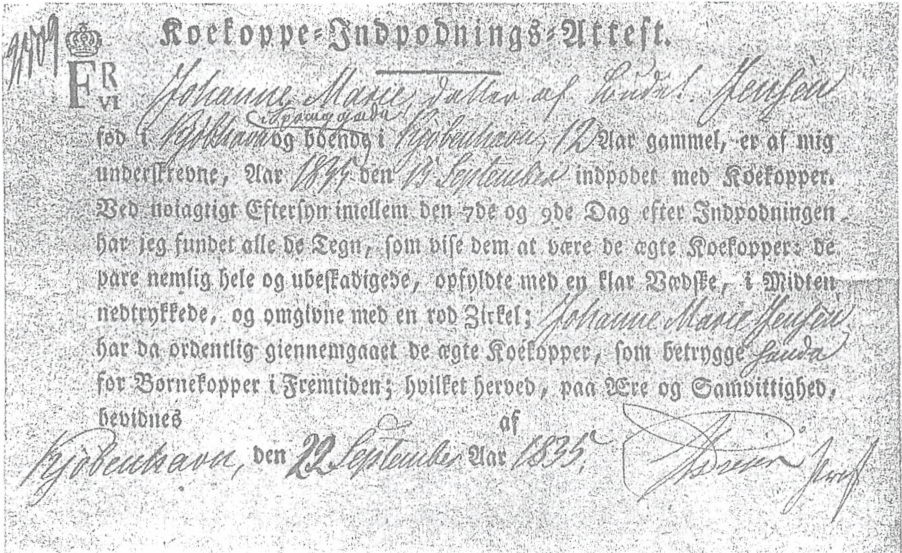 Koekoppe-Indpodnings-Attest.
F R VI
Johanne Marie, datter af Jensen
fød i Kjøbhavn og boende i Kjøbenhavn, 12 Aar gammel, er af mig
underskrevne, Aar 1835, den 15 September indpodet med Koekopper.
Ved nøiagtigt Eftersyn imellem den 7de og 9de Dag efter Indpodningen
har jeg fundet alle de Tegn, som vise dem at være de ægte Koekopper: de
vare nemlig hele og ubeskadigede, opfyldte med en klar Vædske, i Midten
nedtrykkede, og omgivne med en rød Zirkel; Johanne Marie Jensen
har da ordentlig giennemgaaet de ægte Koekopper, som betrygge hende
for Børnekopper i Fremtiden; hvilket herved, paa Ære og Samvittighed,
bevidnes af
Kjöbenhavn, den 22 September Aar 1835.